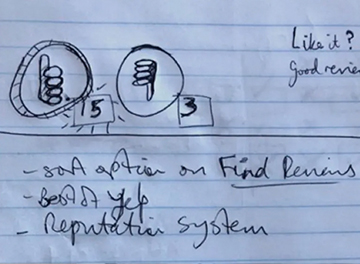 Like it?
Good review
5
3
- sort option on Find Reviews
- Best of yelp
- Reputation system